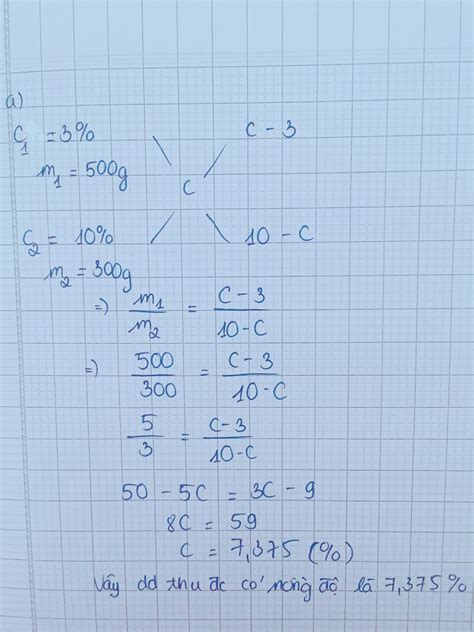 a)
C₁ = 3% C - 3
m₁ = 500g
C
C₂ = 10% 10 - C
m₂ = 300g
=) m₁/m₂ = C-3/10-C
=) 500/300 = C-3/10-C
5/3 = C-3/10-C
50 - 5C = 3C - 9
8C = 59
C = 7,375 (%)
Vậy dd thu đc có nồng độ là 7,375%